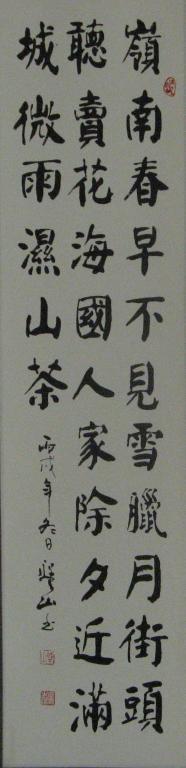 嶺南春早不見雪臘月街頭
聽賣花海國人家除夕近滿
城微雨濕山茶
丙戌年冬日